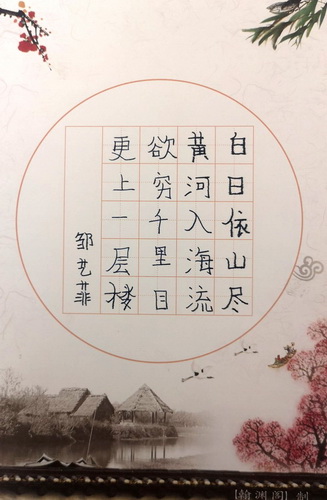 白日依山尽
黄河入海流
欲穷千里目
更上一层楼
邹艺菲
翰渊阁制